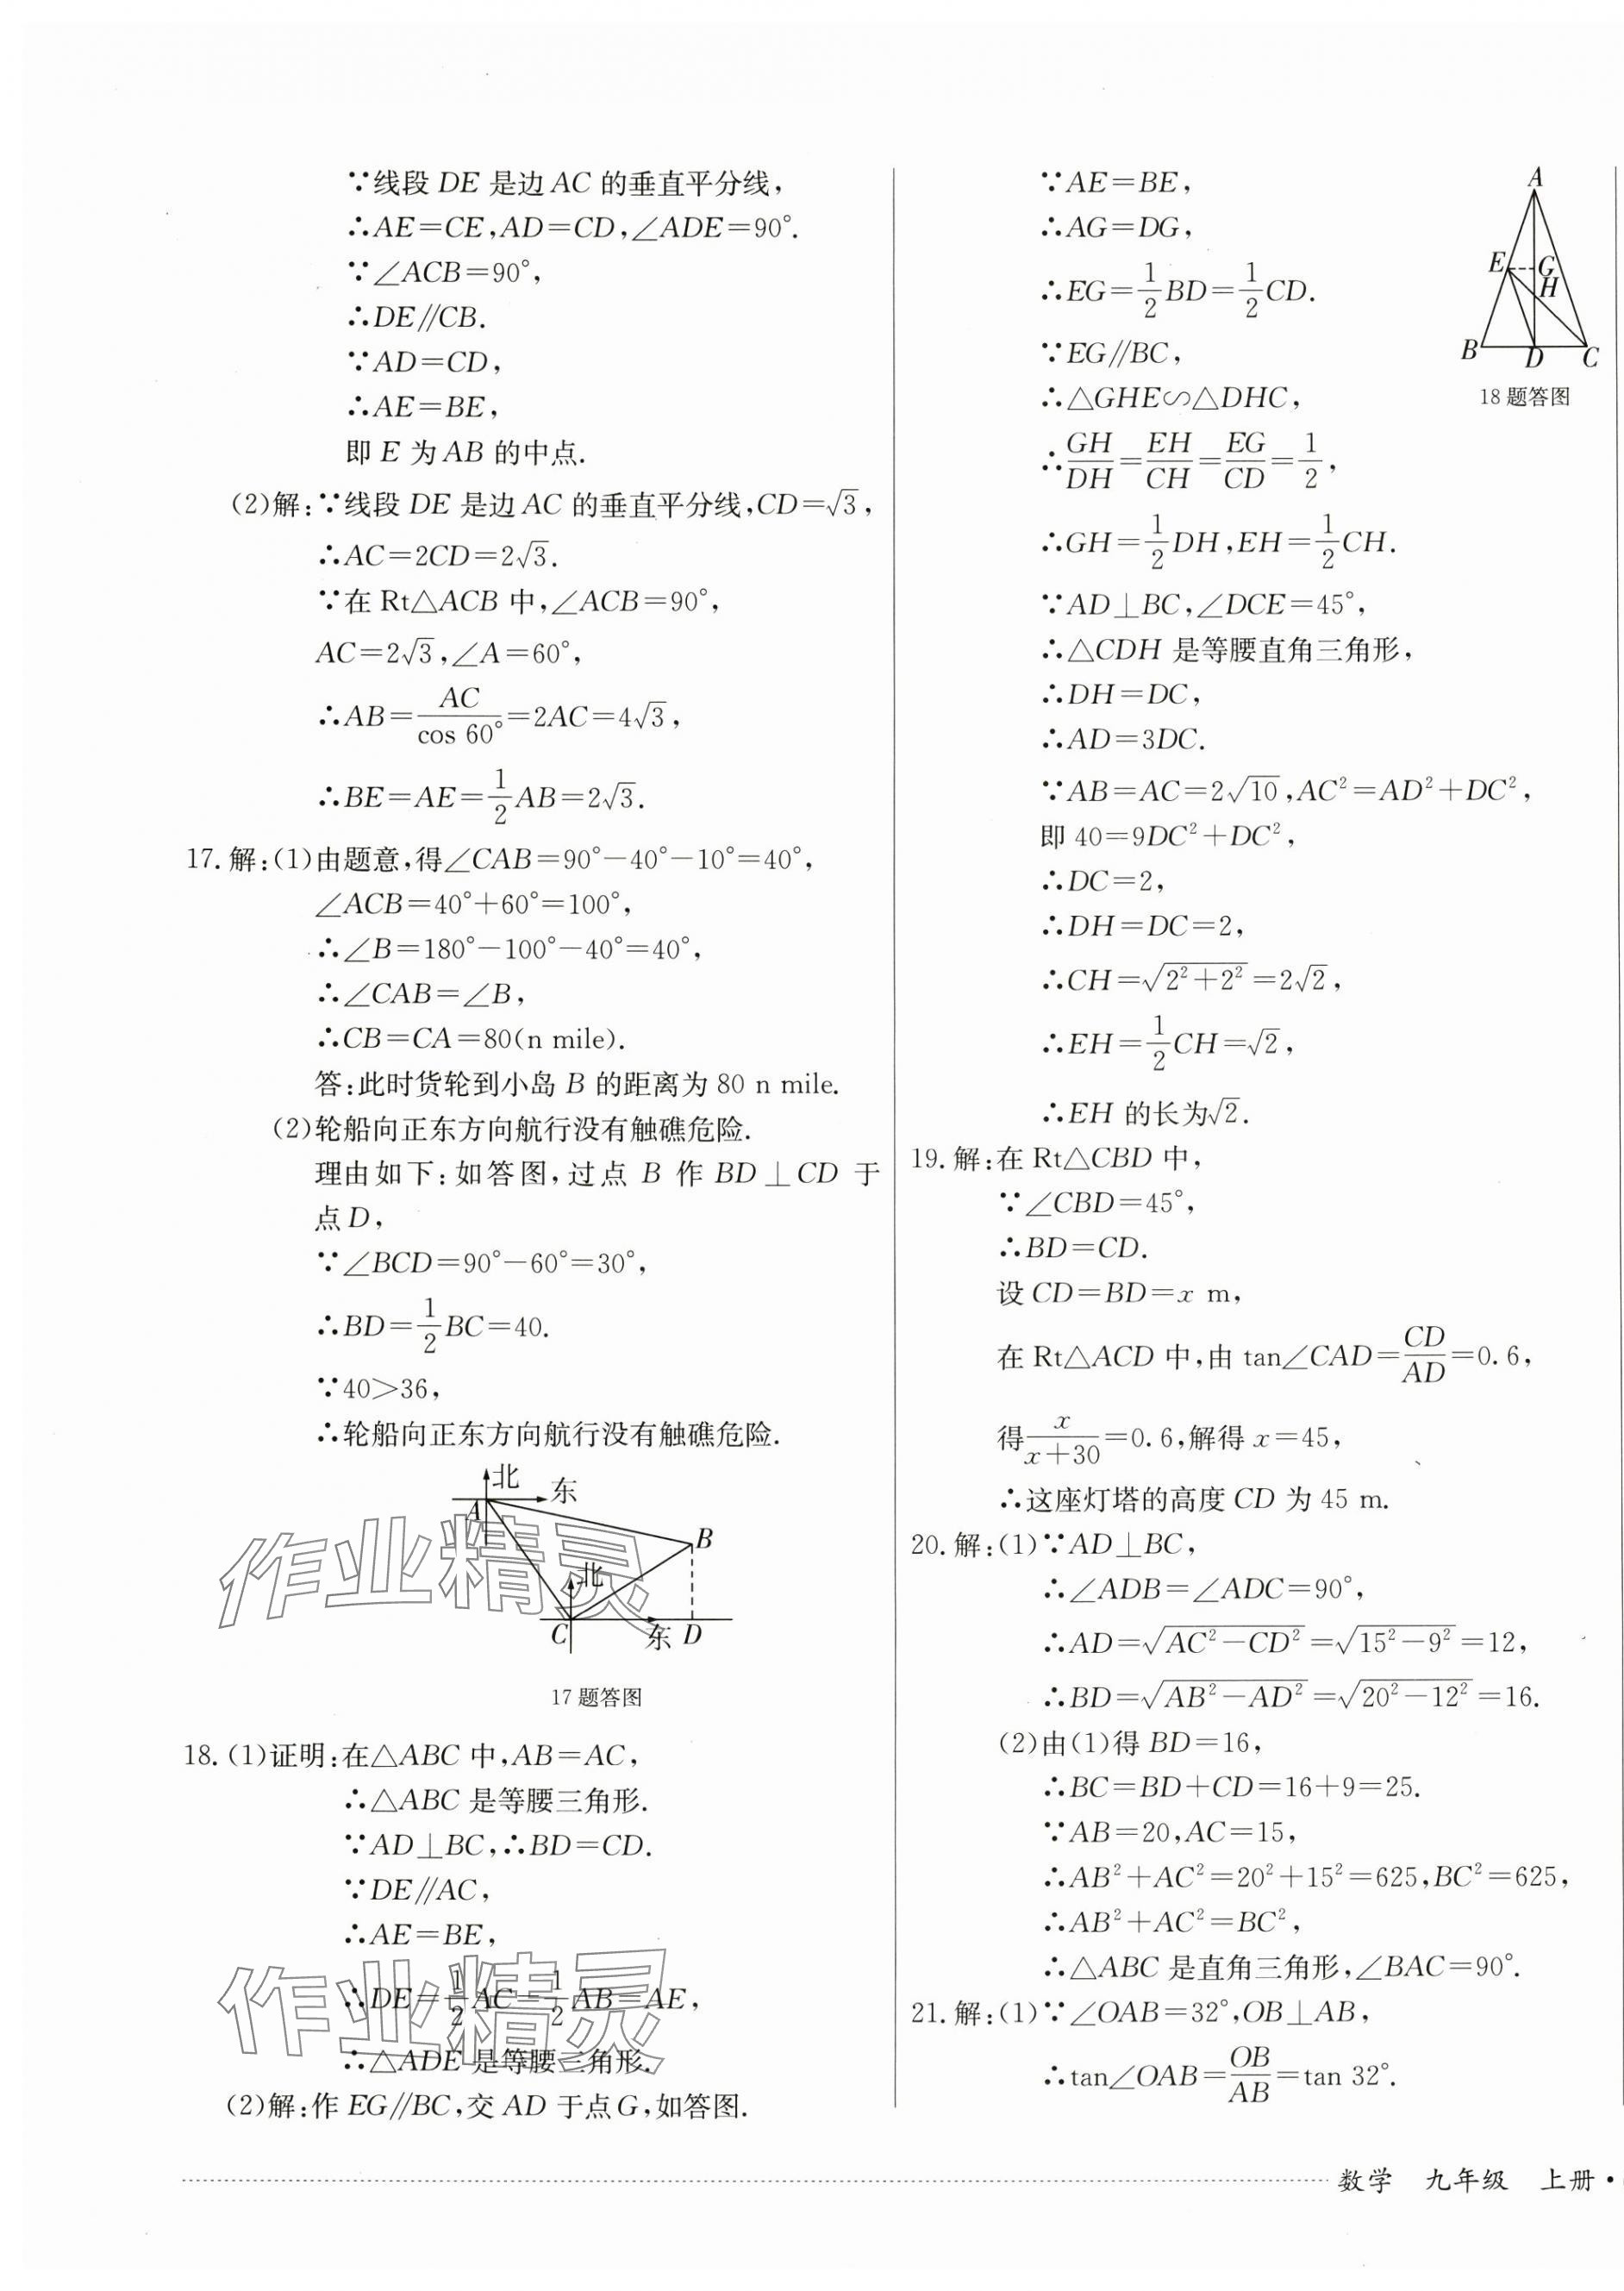 ∵线段 DE 是边 AC 的垂直平分线，
∴AE=CE，AD=CD，∠ADE=90°.
∵∠ACB=90°，
∴DE∥CB.
∵AD=CD，
∴AE=BE，
即 E 为 AB 的中点.
(2)解：∵线段 DE 是边 AC 的垂直平分线，CD=√3，
∴AC=2CD=2√3.
∵在 Rt△ACB 中，∠ACB=90°，
AC=2√3，∠A=60°，
∴AB=AC/cos 60°=2AC=4√3，
∴BE=AE=1/2 AB=2√3.
17. 解：(1)由题意，得∠CAB=90°－40°－10°=40°，
∠ACB=40°+60°=100°，
∴∠B=180°－100°－40°=40°，
∴∠CAB=∠B，
∴CB=CA=80(n mile).
答：此时货轮到小岛 B 的距离为 80 n mile.
(2)轮船向正东方向航行没有触礁危险.
理由如下：如答图，过点 B 作 BD⊥CD 于
点 D，
∵∠BCD=90°－60°=30°，
∴BD=1/2 BC=40.
∵40>36，
∴轮船向正东方向航行没有触礁危险.
北
东
A
B
北
C
东
D
17 题答图
18. (1)证明：在△ABC 中，AB=AC，
∴△ABC 是等腰三角形.
∵AD⊥BC，∴BD=CD.
∵DE∥AC，
∴AE=BE，
∴DE=1/2 AC=1/2 AB=AE，
∴△ADE 是等腰三角形.
(2)解：作 EG∥BC，交 AD 于点 G，如答图.
作业精灵
作业精灵
∵AE=BE，
∴AG=DG，
∴EG=1/2 BD=1/2 CD.
∵EG∥BC，
∴△GHE∽△DHC，
∴GH/DH=EH/CH=EG/CD=1/2，
∴GH=1/2 DH，EH=1/2 CH.
∵AD⊥BC，∠DCE=45°，
∴△CDH 是等腰直角三角形，
∴DH=DC，
∴AD=3DC.
∵AB=AC=2√10，AC²=AD²+DC²，
即 40=9DC²+DC²，
∴DC=2，
∴DH=DC=2，
∴CH=√(2²+2²)=2√2，
∴EH=1/2 CH=√2，
∴EH 的长为√2.
A
E
G
H
B
D
C
18 题答图
19. 解：在 Rt△CBD 中，
∵∠CBD=45°，
∴BD=CD.
设 CD=BD=x m，
在 Rt△ACD 中，由 tan∠CAD=CD/AD=0.6，
得 x/(x+30)=0.6，解得 x=45，
∴这座灯塔的高度 CD 为 45 m.
20. 解：(1)∵AD⊥BC，
∴∠ADB=∠ADC=90°，
∴AD=√(AC²－CD²)=√(15²－9²)=12，
∴BD=√(AB²－AD²)=√(20²－12²)=16.
(2)由(1)得 BD=16，
∴BC=BD+CD=16+9=25.
∵AB=20，AC=15，
∴AB²+AC²=20²+15²=625，BC²=625，
∴AB²+AC²=BC²，
∴△ABC 是直角三角形，∠BAC=90°.
21. 解：(1)∵∠OAB=32°，OB⊥AB，
∴tan∠OAB=OB/AB=tan 32°.
数学 九年级 上册·